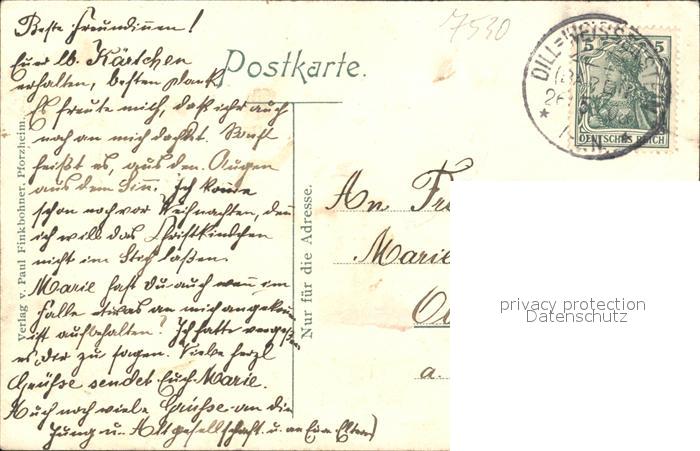 Beste Freundinnen!
Euer lb. Kärtchen
erhalten, besten Dank
Es freute mich, daß ihr auch
noch an mich dachtet. Sonst
heißt es, aus den Augen
aus dem Sinn. Ich komme
schon noch vor Weihnachten, denn
ich will das Christkindchen
nicht im Stich laßen.
Marie hast du auch wenn im
Falle etwas an mich angekom
ist aufbehalten? Ich hatte vergeßen
es Dir zu sagen. Viele herzl
Grüße sendet Euch Marie.
Auch noch viele Grüße an die
Jung u. Alt gesellschaft u. an Eure Eltern
Postkarte.
7530
DILL=WEISSENSTEIN
5 5
DEUTSCHES REICH
Verlag v. Paul Finkbohner, Pforzheim.
Nur für die Adresse.
An
Marie
a.
privacy protection
Datenschutz